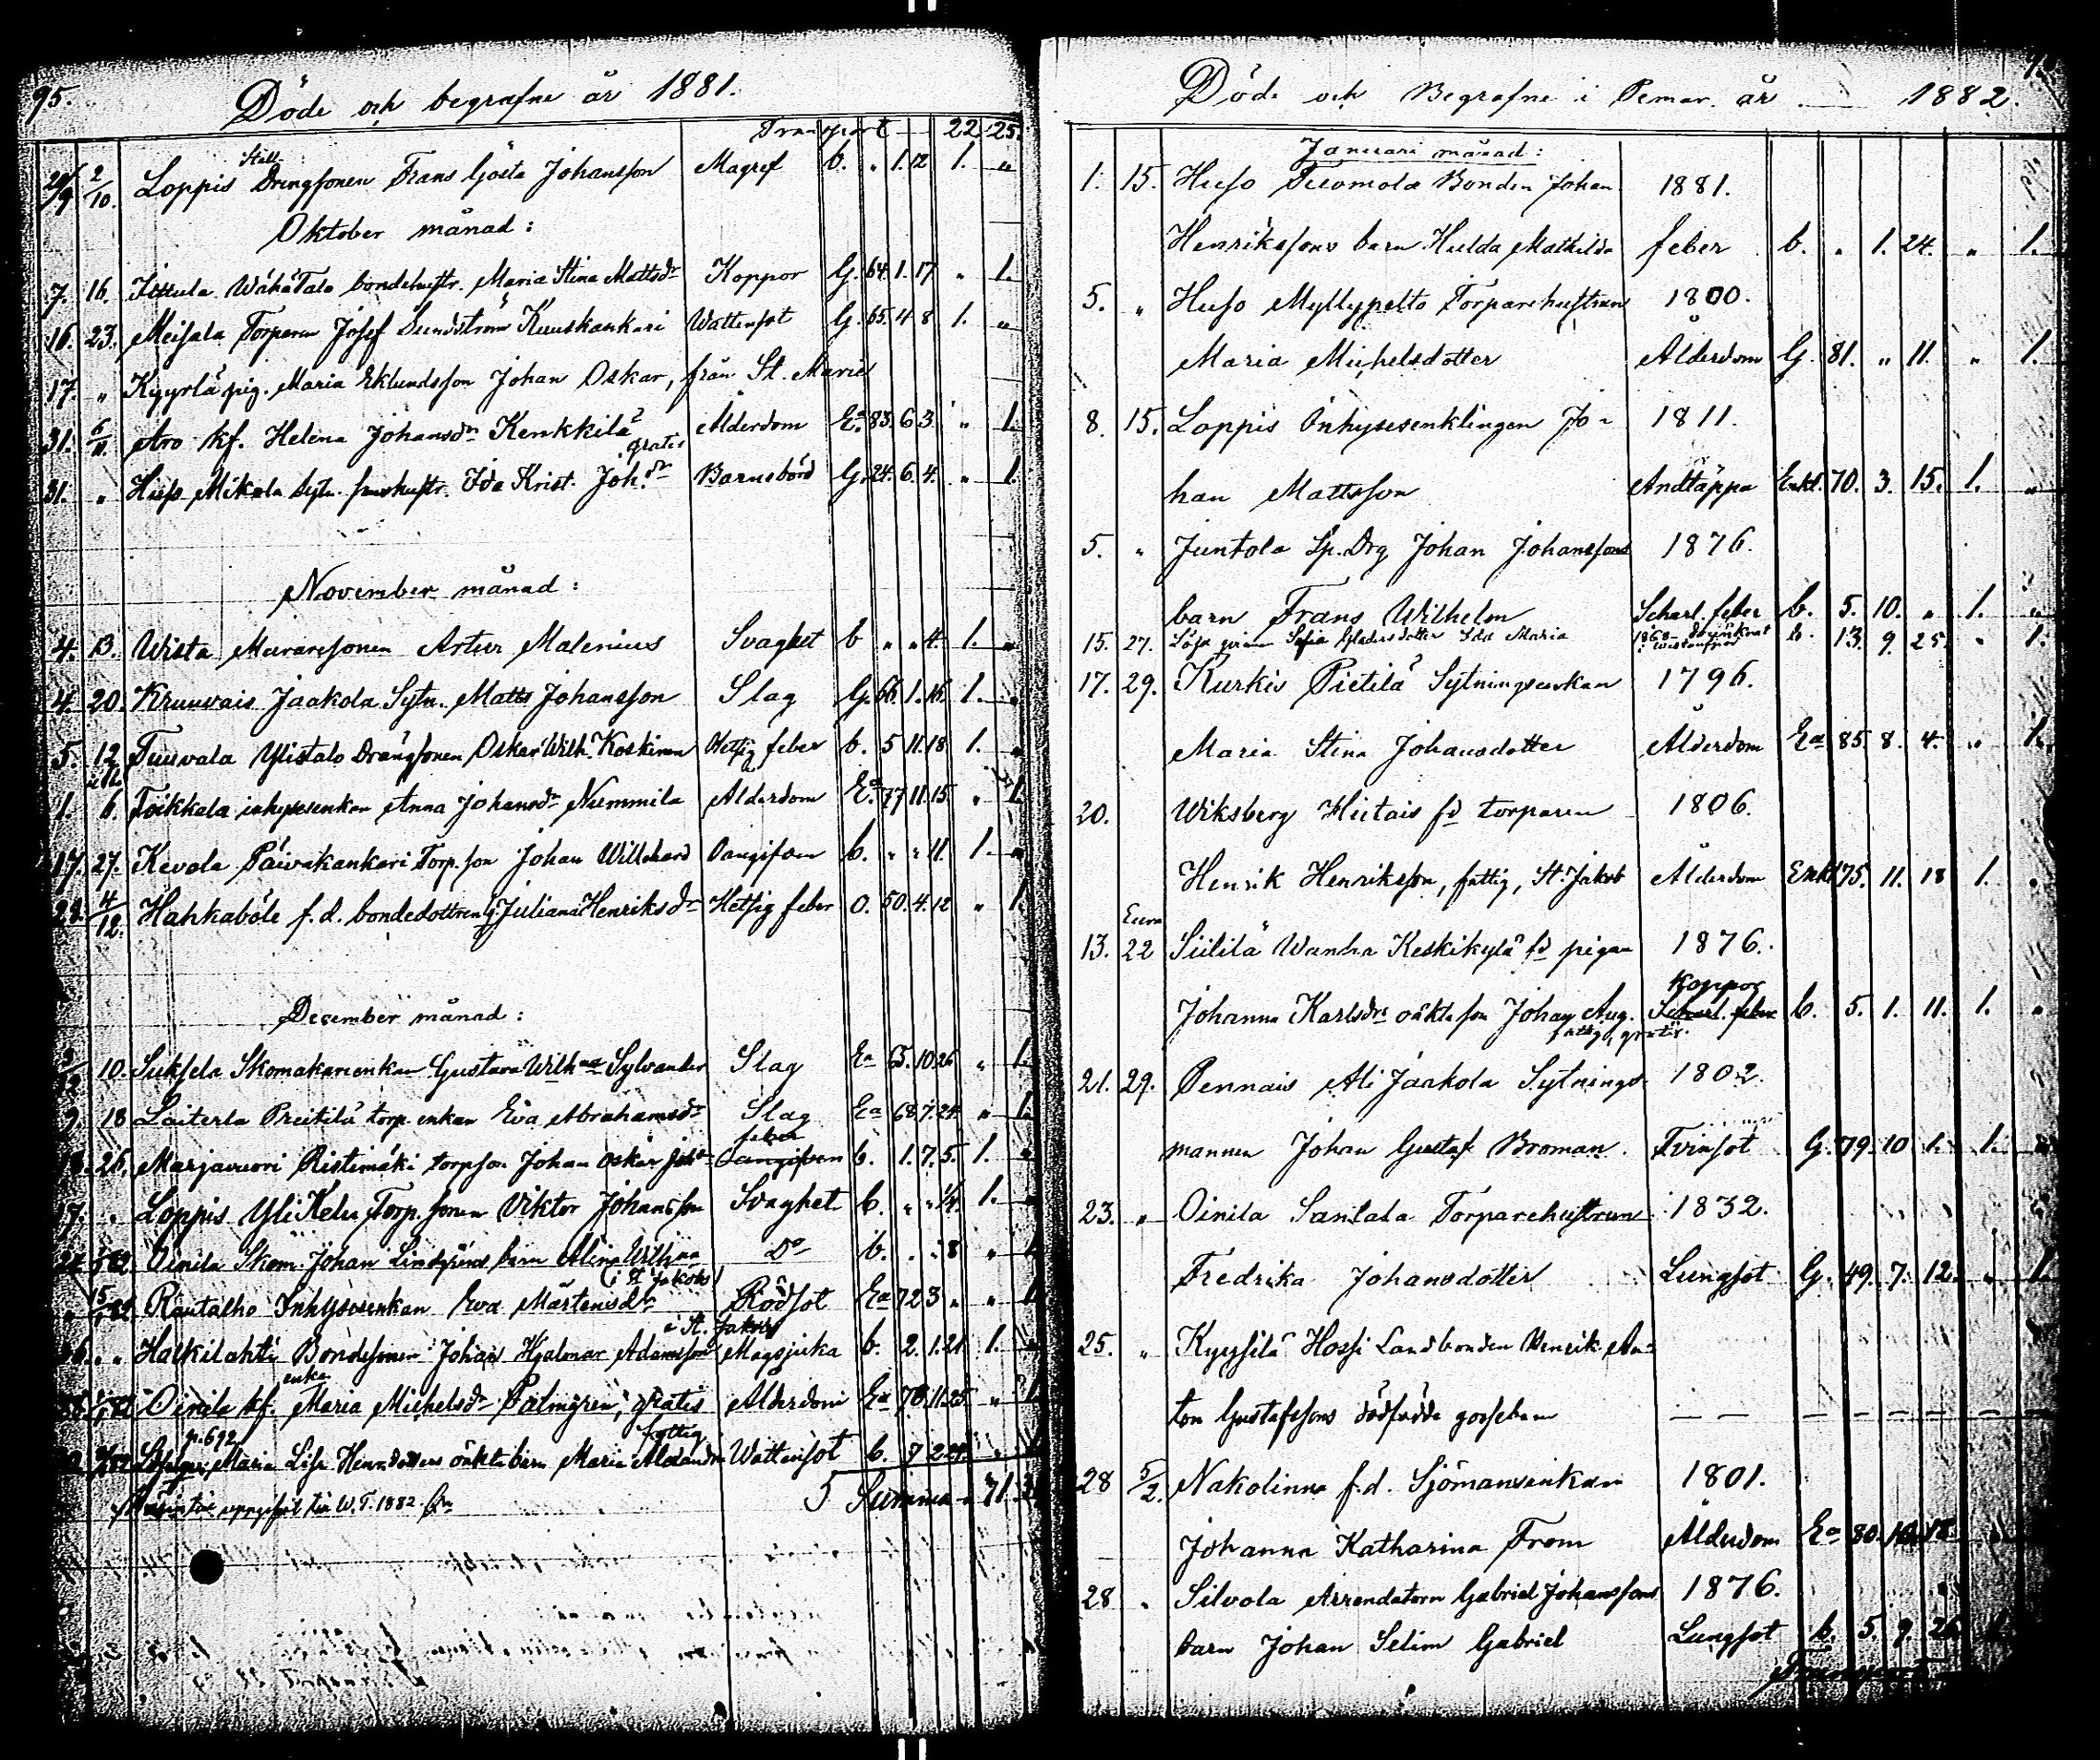 95.
Döde och begrafne år 1881.
Transport 22. 25.
29/9 2/10. Loppis Stall Drengsonen Frans Gösta Johansson Magref b. " 1. 12 1. "
Oktober månad:
7. 16. Ittula Wähätalo bondehustr. Maria Stina Mattsdr Koppor G. 64. 1. 17 " 1.
16. 23. Meisala Torparen Josef Sundström Kuuskankari Wattensot G. 65. 4 8 1. "
17. " Kyyrlä pig. Maria Eklundsson Johan Oskar, från St. Marie
31. 6/11 Aro kf. Helena Johansdr Kenkkilä gratis Ålderdom Ea 83. 6 3. " 1.
31. " Huso Mikola Sytn. sonhustr. Ida Krist. Joh.dr Barnsbörd G. 24. 6. 4. " 1.
November månad:
4. 13. Wista Muraresonen Artur Malenius Svaghet b " " 4. 1. "
4. 20. Kruuvais Jaakola Sytn. Matts Johansson Slag G. 66. 1. 16. 1. "
5. 12 Tuuvala Ylistalo Drängsonen Oskar Wilh. Koskinen Hetsig feber b. 5 11. 18 1. "
1. 6. Toikkala inhysesenkan Anna Johansdr Nummila Alderdom Ea 77 11. 15. " 1.
17. 27. Kevola Päiväkankari Torp. son Johan Willehard Oangifven b. " " 11. 1. "
28. 4/12. Hahkaböle f. d. bondedottren Juliana Henriksdr Hetsig feber O. 50. 4. 12 " 1.
December månad:
3/12 10. Suksela Skomakarenkan Gustava Wilhna Sylvander Slag Ea 65. 10. 26 " 1.
9. 18 Laiterla Prietilä torp. enkan Eva Abrahamsdr Slag Ea 68. 7. 24. " 1.
26. Marjavuori Ristimäki torpson Johan Oskar feber Oangifven b. 1. 7. 5. 1. "
17. " Loppis Yli Kelu Torp. sonen Viktor Johansson Svaghet b. " " 14. 1. "
Oinila Skom. Johan Lindgrens barn Alina Wilhna Do b. " " 8 " 1.
(i St. Jakobs)
" 15/1 82 Rautalho Inhysesenkan Eva Mårtensdr Rödsot Ea 72 3 " " 1.
i St. Jakobs
" Halkilahti Bondesonen Johan Hjalmar Adamsson Magsjuka b. 2. 1. 21. 1. "
Oinila kf. enka Maria Michelsd. Palmgren, gratis Alderdom Ea 78. 11. 25. " 1.
p. 692 fattig
Maria Lisa Henr.dotters oäkta barn Maria Wattensot b. 7 2 24. " 1.
uppgifvit till W. T. 1882. Summa
Döde och Begrafne i Pemar år 1882.
Januari månad:
1. 15. Huso Tuomola Bonden Johan 1881.
Henrikssons barn Hulda Mathilda feber b. " 1. 24. " 1.
5. " Huso Myllypelto Torparehustrun 1800.
Maria Michelsdotter Ålderdom G. 81. " 11. " 1.
8. 15. Loppis Inhysesenklingen Jo- 1811.
han Mattsson Andtäppa Enkl. 70. 3. 15. 1. "
5. " Juntola Sp. Drg Johan Johanssons 1876.
barn Frans Wilhelm Scharl. feber b. 5. 10. " 1. "
15. 27. Lösa pigan Sofia dotter Ida Maria 1868 drunknat b. 13. 9. 25. " 1.
17. 29. Kurkis Pietilä Sytningsenkan 1796.
Maria Stina Johansdotter Ålderdom Ea 85. 8. 4. " 1.
20. Wiksberg Hiitais fd torparen 1806.
Henrik Henriksson, fattig, St. Jakob Ålderdom Enkl 75. 11. 18 1. "
Eura
13. 22 Siililä Wanha Keskikylä fd pigan 1876.
Koppor
Johanna Karlsdrs oäkta son Johan Aug. Scharl. feber b. 5. 1. 11. 1. "
fattig, gratis.
21. 29. Pennais Ali Jaakola Sytnings- 1802.
mannen Johan Gustaf Broman. Tvinsot G. 79. 10 1. 1. "
23. " Oinila Santala Torparehustrun 1832.
Fredrika Johansdotter Lungsot G. 49. 7. 12. " 1.
25. " Kyysilä Hossi Landbonden Henrik An-
ton Gustafssons dödfödda gossebarn — — — — — —
28 5/2. Nakolinna f.d. Sjömansenkan 1801.
Johanna Katharina From Ålderdom Ea 80. 10. 18
28 " Silvola Arrendatorn Gabriel Johanssons 1876.
barn Johan Selim Gabriel Lungsot b. 5. 9. 26 1.
Transport